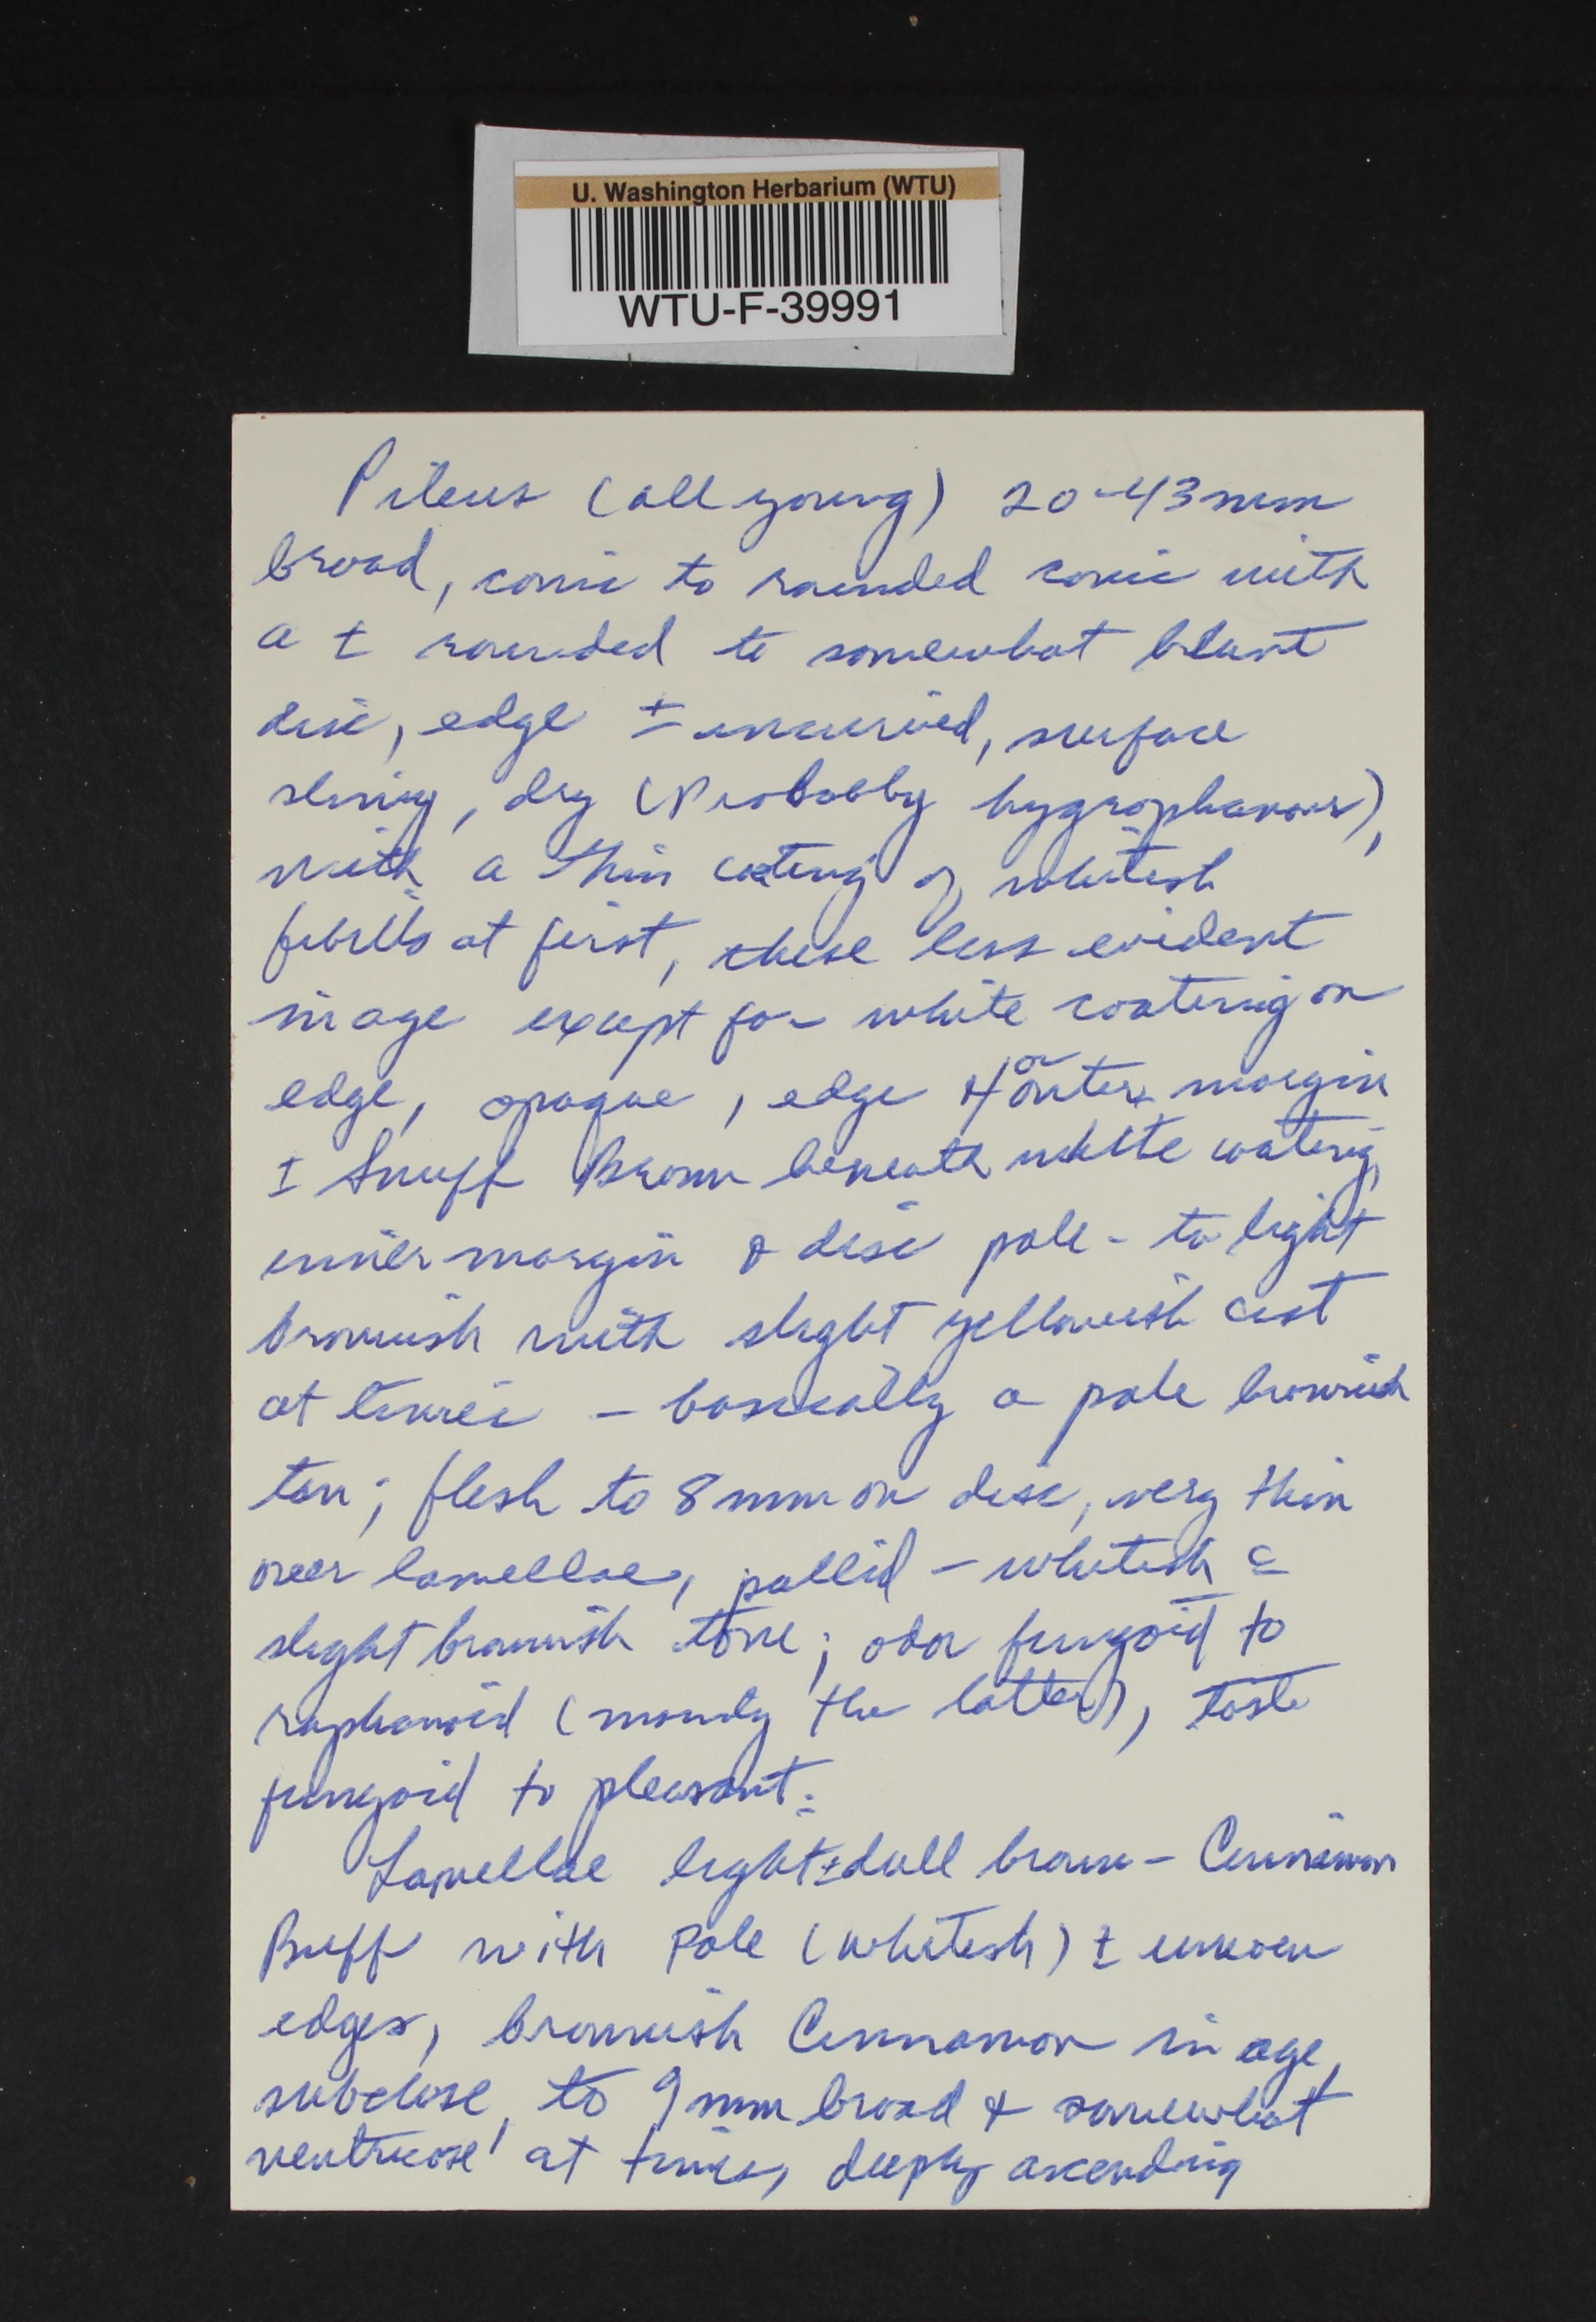 U. Washington Herbarium (WTU)
WTU-F-39991
Pileus (all young) 20-43 mm
broad, conic to rounded conic with
a ± rounded to somewhat blunt
disc, edge ± incurved, surface
shiny, dry (Probably hygrophanous),
with a thin coating of whitish
fibrils at first, these less evident
in age except for white coating on
edge, opaque, edge & or outer margin
± Snuff Brown beneath white coating,
inner margin & disc pale- to light
brownish with slight yellowish cast
at times – basically a pale brownish
tan; flesh to 8 mm on disc, very thin
over lamellae, pallid – whitish c̄
slight brownish tone; odor fungoid to
raphanoid (mainly the latter), taste
fungoid to pleasant.
Lamellae light ± dull brown – Cinnamon
Buff with pale (whitish) ± uneven
edges, brownish Cinnamon in age,
subclose, to 9 mm broad & somewhat
ventricose at times, deeply ascending